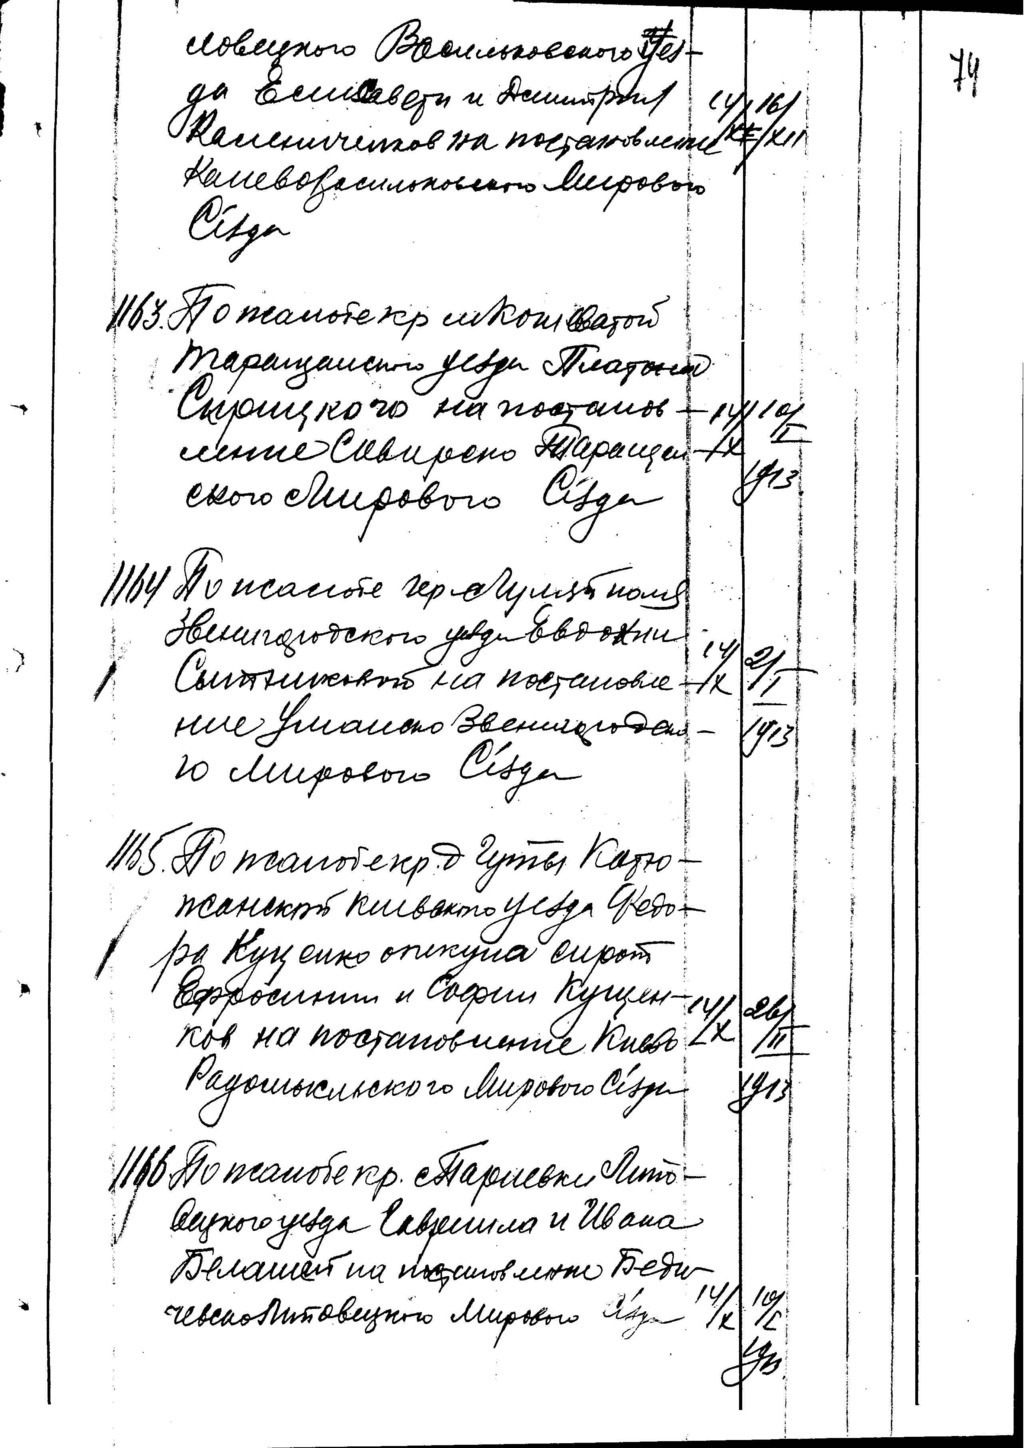 74
ловецкого Васильковского Уез-
да Елисаветы и Димитрия 14/XI 16/XII
Каменчуков на постановление
Каневовасильковского Мирового
Сізда
1163. По жалобе кр м Кошеватой
Таращанского уезда Платона
Скрицкого на постанов- 14/X 10/I
ление Сквирско Таращан-
ского Мирового Сізда 1913
1164 По жалобе кр.
Звенигородского уезда Евдокии
Сытниковой на постановле- 14/X 2/I
ние Уманско Звенигородско- 1913
го Мирового Сізда
1165. По жалобе кр. д Гуты Катю-
жанской Киевского уезда Федо-
ра Куценко опекуна сирот
Ефросинии и Софии Куцен-
ков на постановление Киево 14/X 26/II
Радомысльского Мирового Сізда 1913
1166 По жалобе кр. с Тариевки Липо-
вецкого уезда Гавриила и Ивана
Белашей на постановление Берди-
чевсколиповецкого Мирового Сізда 14/X 10/I
1913